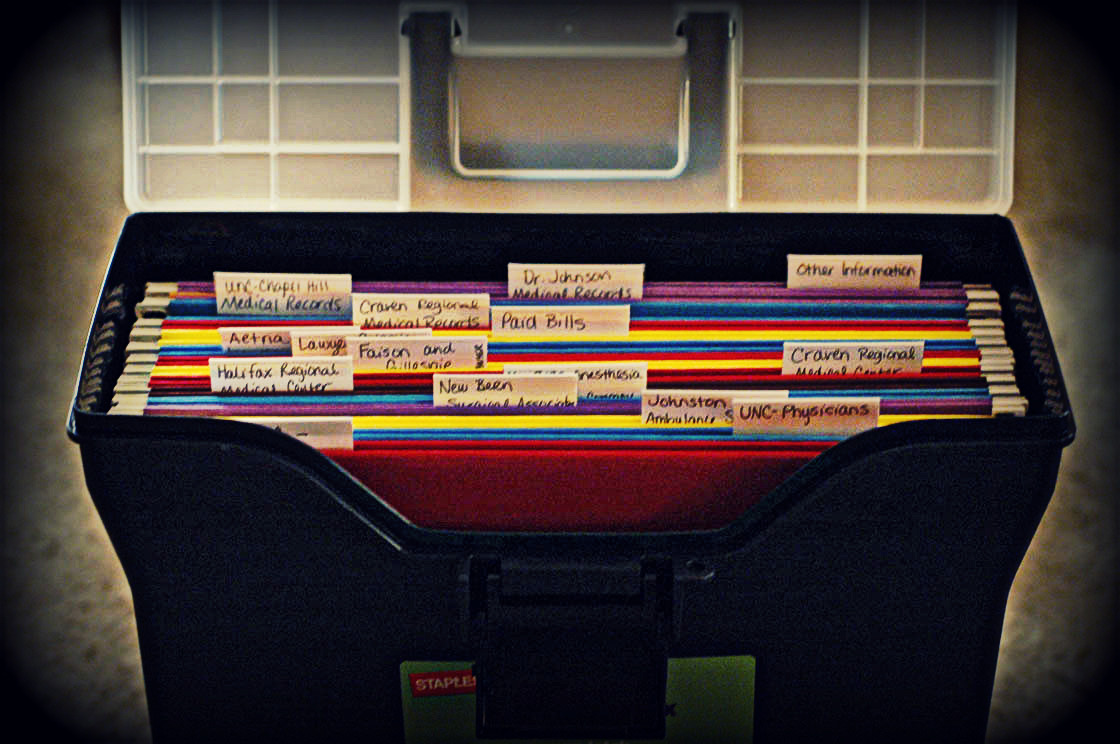 UNC-Chapel Hill
Medical Records
Dr. Johnson
Medical Records
Other Information
Craven Regional
Medical Records
Paid Bills
Aetna
Lawye
Faison and
Gillespie
Craven Regional
Medical Center
Halifax Regional
Medical Center
New Bern
Surgical Associate
nesthesia
Johnston
Ambulance S
UNC-Physicians
STAPLES